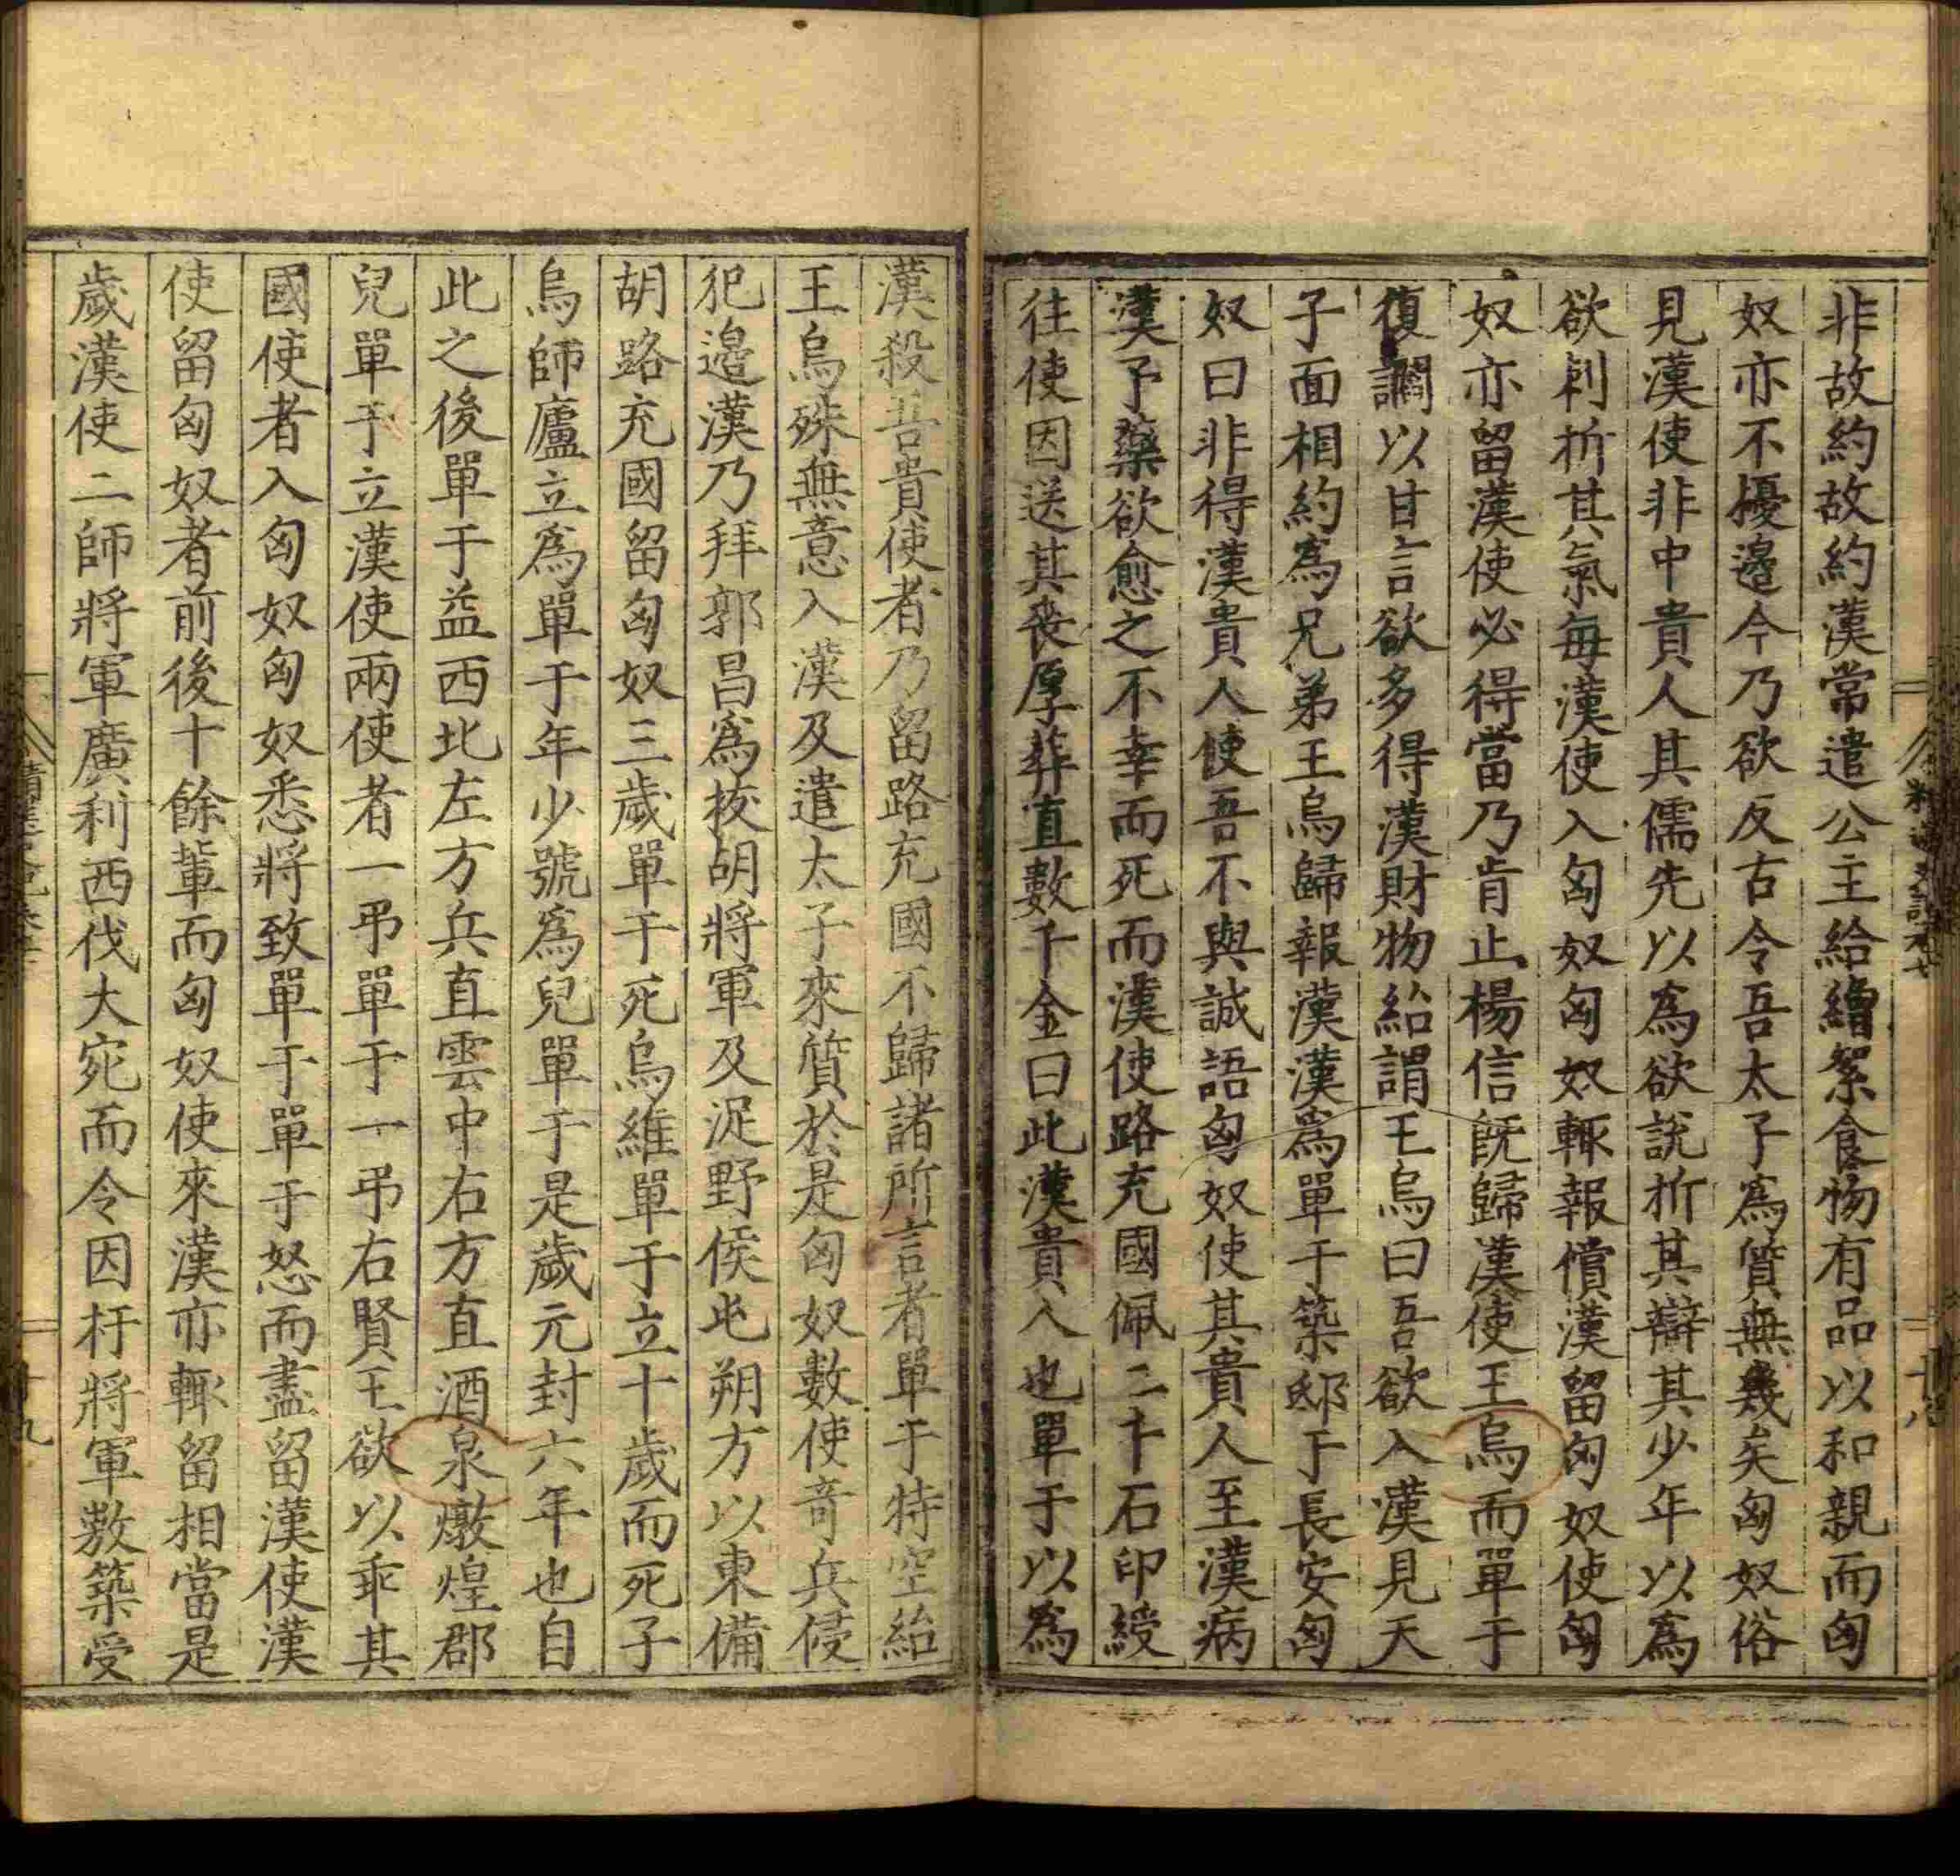 非故約故約漢常遣公主給繒絮食物有品以和親而匈
奴亦不擾邊今乃欲反古令吾太子爲質無幾矣匈奴俗
見漢使非中貴人其儒先以爲欲說折其辯其少年以爲
欲刺折其氣每漢使入匈奴匈奴輒報償漢留匈奴使匈
奴亦留漢使必得當乃肯止楊信旣歸漢使王烏而單于
復讇以甘言欲多得漢財物紿謂王烏曰吾欲入漢見天
子面相約爲兄弟王烏歸報漢漢爲單于築邸于長安匈
奴曰非得漢貴人使吾不與誠語匈奴使其貴人至漢病
漢予藥欲愈之不幸而死而漢使路充國佩二千石印綬
往使因送其喪厚葬直數千金曰此漢貴人也單于以爲
十八
漢殺吾貴使者乃留路充國不歸諸所言者單于特空紿
王烏殊無意入漢及遣太子來質於是匈奴數使奇兵侵
犯邊漢乃拜郭昌爲拔胡將軍及浞野侯屯朔方以東備
胡路充國留匈奴三歲單于死烏維單于立十歲而死子
烏師廬立爲單于年少號爲兒單于是歲元封六年也自
此之後單于益西北左方兵直雲中右方直酒泉燉煌郡
兒單于立漢使兩使者一弔單于一弔右賢王欲以乖其
國使者入匈奴匈奴悉將致單于單于怒而盡留漢使漢
使留匈奴者前後十餘輩而匈奴使來漢亦輒留相當是
歲漢使二師將軍廣利西伐大宛而令因杅將軍敖築受